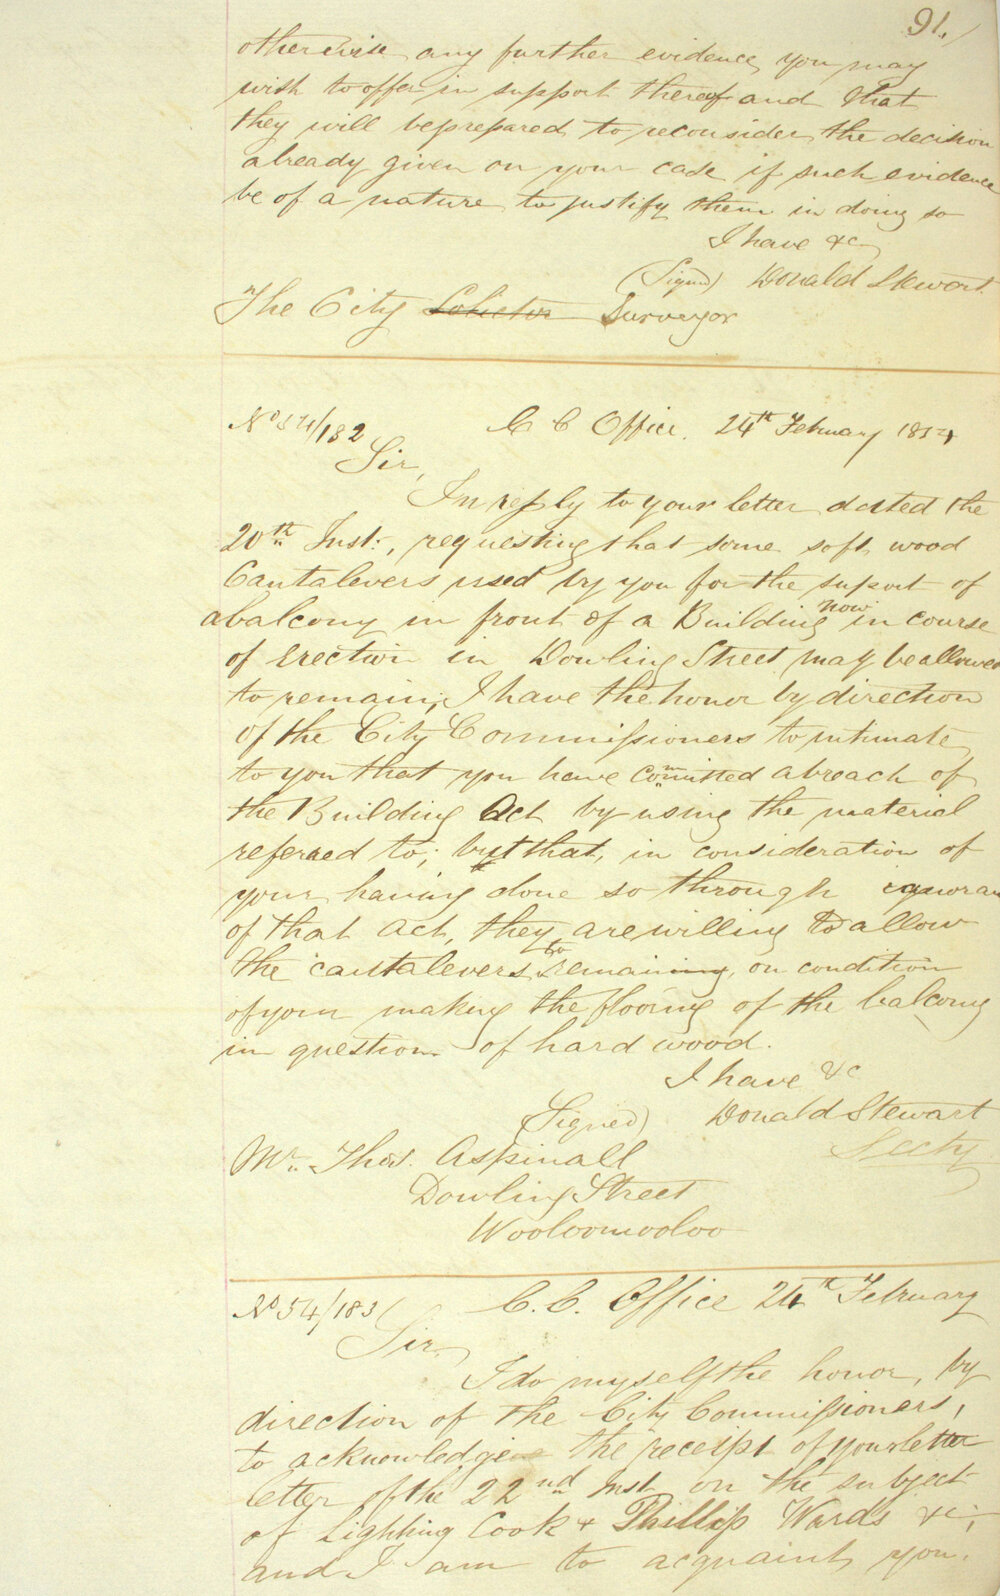 91.
otherwise any further evidence you may
wish to offer in support thereof and that
they will be prepared to reconsider the decision
already given on your case if such evidence
be of a nature to justify them in doing so
I have &c
(Signed) Donald Stewart
The City Solicitor Surveyor
No 54/182 C C Office. 24th February 1854
Sir,
In reply to your letter dated the
20th Inst:, requesting that some soft wood
Cantalevers used by you for the suport of
a balcony in front of a Building now in course
of Erection in Dowling Street may be allowed
to remain; I have the honor by direction
of the City Commissioners to intimate
to you that you have committed a breach of
the Building Act by using the material
referred to; but that, in consideration of
your having done so through ignoran
of that Act, they are willing to allow
the cantalevers to remaining, on condition
of your making the flooring of the balcony
in question of hard wood.
I have &c
(Signed) Donald Stewart
Secty
Mr. Thos. Aspinall
Dowling Street
Wooloomooloo
No 54/183 C. C. Office 24th February
Sir,
I do myself the honor, by
direction of the City Commissioners,
to acknowledge the receipt of your letter
letter of the 22nd Inst on the subject
of Lighting Cook & Phillip Wards &c;
and I am to acquaint you.